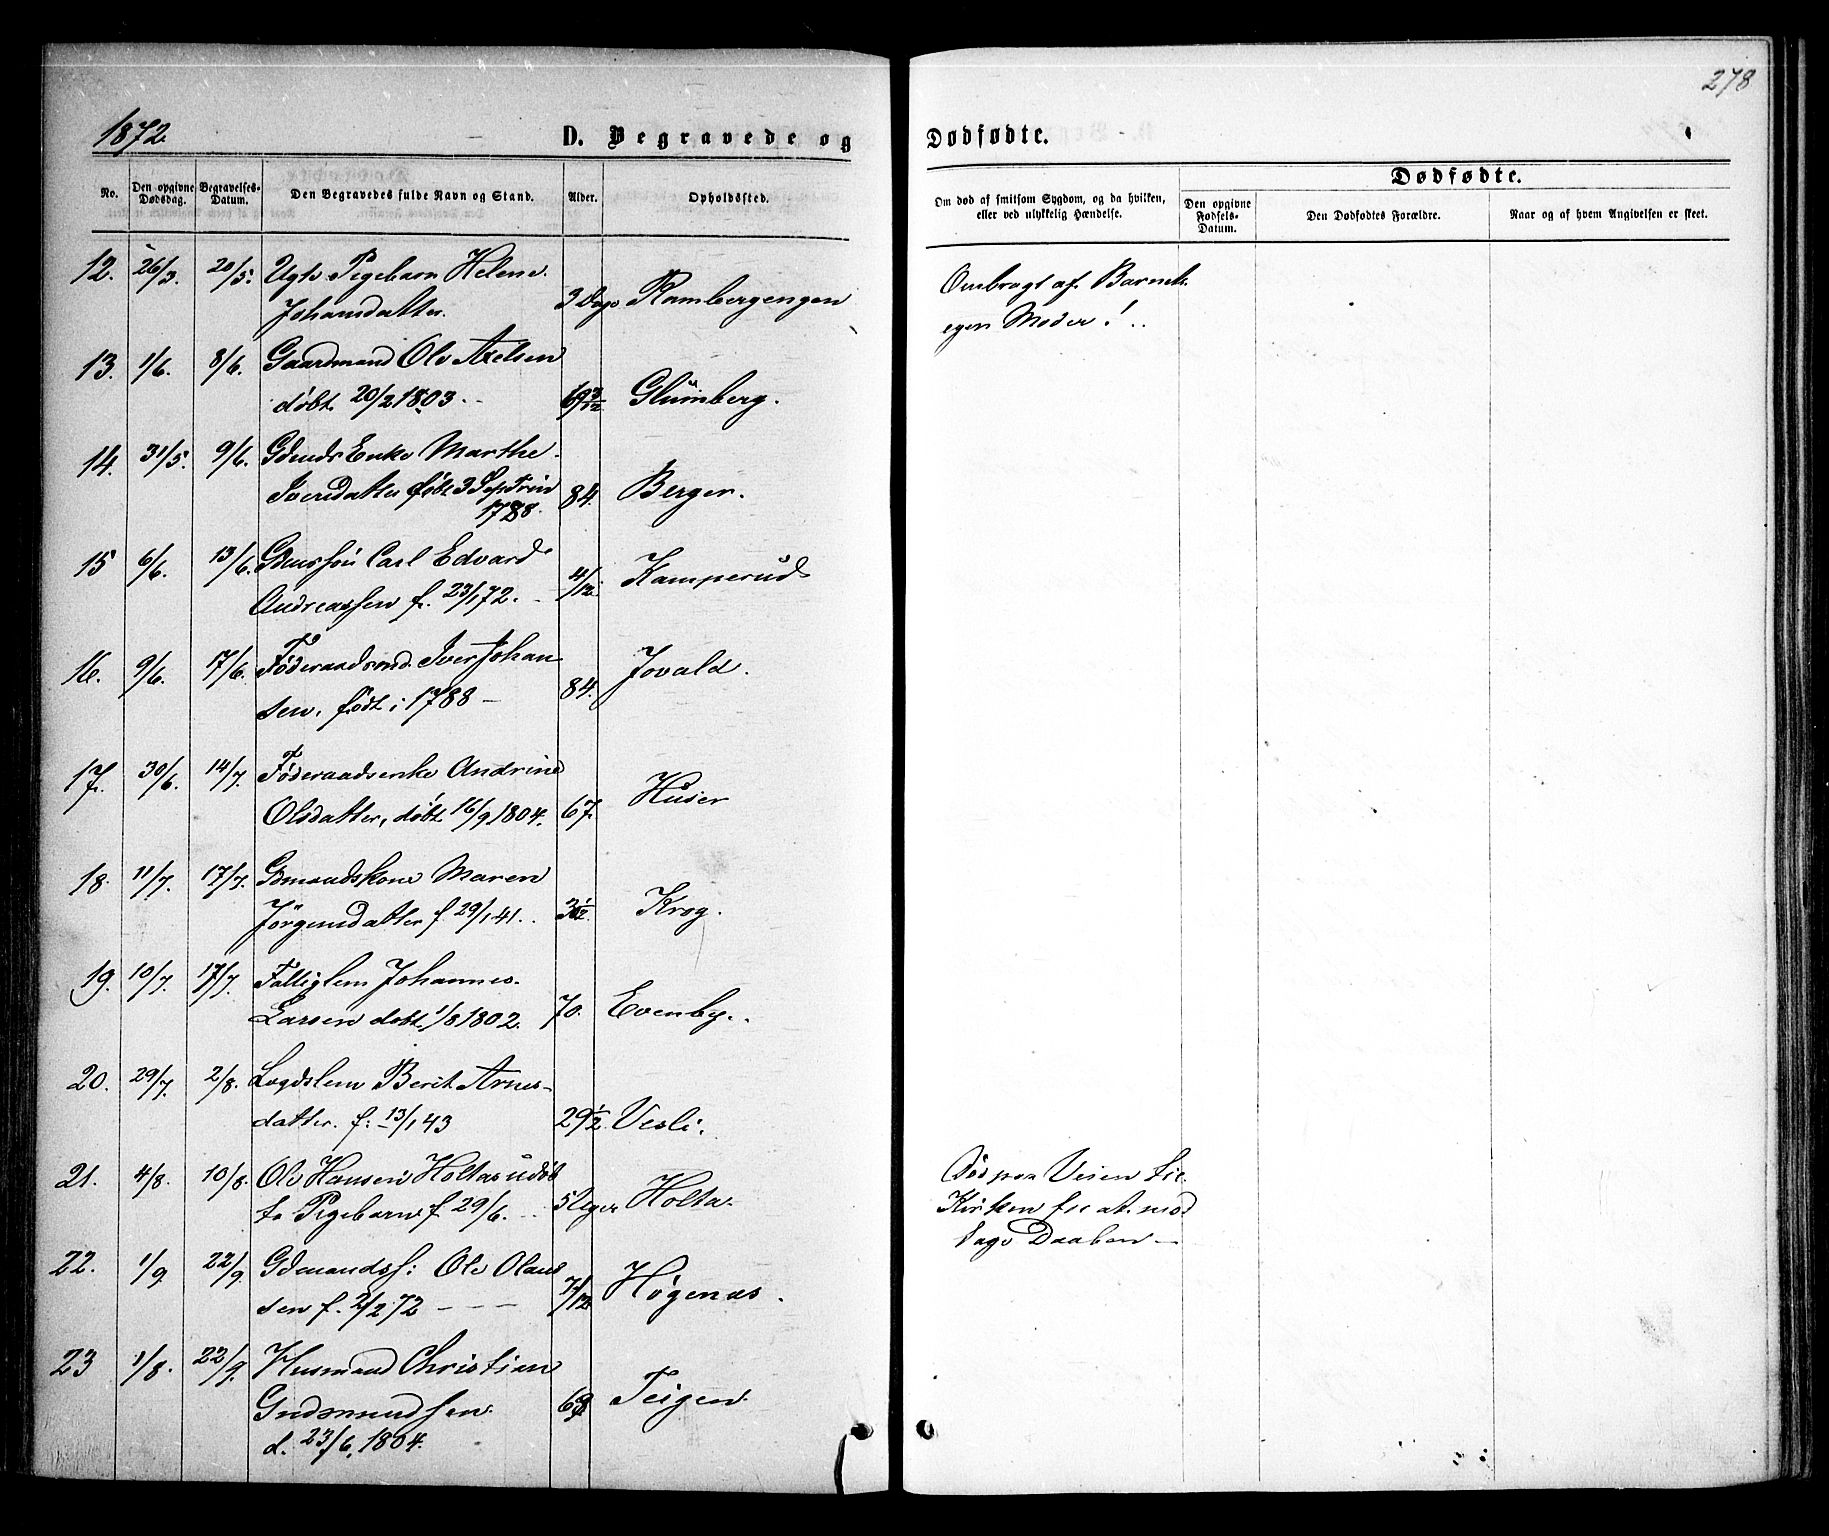 278
1872.
D. Begravede og Dødfødte.
No. Den opgivne Dødsdag. Begravelses-Datum. Den Begravedes fulde Navn og Stand. Alder. Opholdssted.
Om død af smitsom Sygdom, og da hvilken, eller ved ulykkelig Hændelse.
Dødfødte.
Den opgivne Fødsels-Datum. Den Dødfødtes Forældre. Naar og af hvem Angivelsen er skeet.
12. 26/3. 20/5. Ugte Pigebarn Helene
Johansdatter. 3 Dage Rambergengen
Ombragt af Barnets
egen Moder!..
13. 1/6. 8/6. Gaardmand Ole Axelsen
døbt 20/2 1803. 69 3/12 Glümberg.
14. 31/5. 9/6. Gdmds Enke Marthe
Iversdatter døbt 3 Sep Trin 84. Berger.
1788.
15 6/6. 13/6. Gdmssøn Carl Edvard
Andreassen f. 23/1 72. 4/12. Kamperud
16. 9/6. 17/6. Føderaadsmd. Iver Johan
sen. født i 1788 – 84. Jovald.
17. 30/6. 14/7. Føderaadsenke Andrine
Olsdatter, døbt 16/9 1804. 67. Huser
18. 11/7. 17/7. Gdmandskone Maren
Jørgensdatter f. 29/1 41. Krog.
19. 10/7. 17/7. Fattiglem Johannes
Larsen døbt 1/8 1802. 70. Evenby.
20. 29/7. 2/8. Lægdslem Berit Arnes-
datter. f: 13/1 43 29 1/2 Vesli.
21. 4/8. 10/8. Ole Hansen Holtas udøb
te Pigebarn f. 29/6. 5 Uger Holta.
Død paa Veien til
Kirken for at mod
tage Daaben –
22. 1/9. 22/9. Gdmandss: Ole Olaus
sen f. 2/2 72 – – – 7/12 Høgenæs.
23 1/8. 22/9. Husmand Christian
Gudmundsen 69 Teigen.
d. 23/6. 1804.